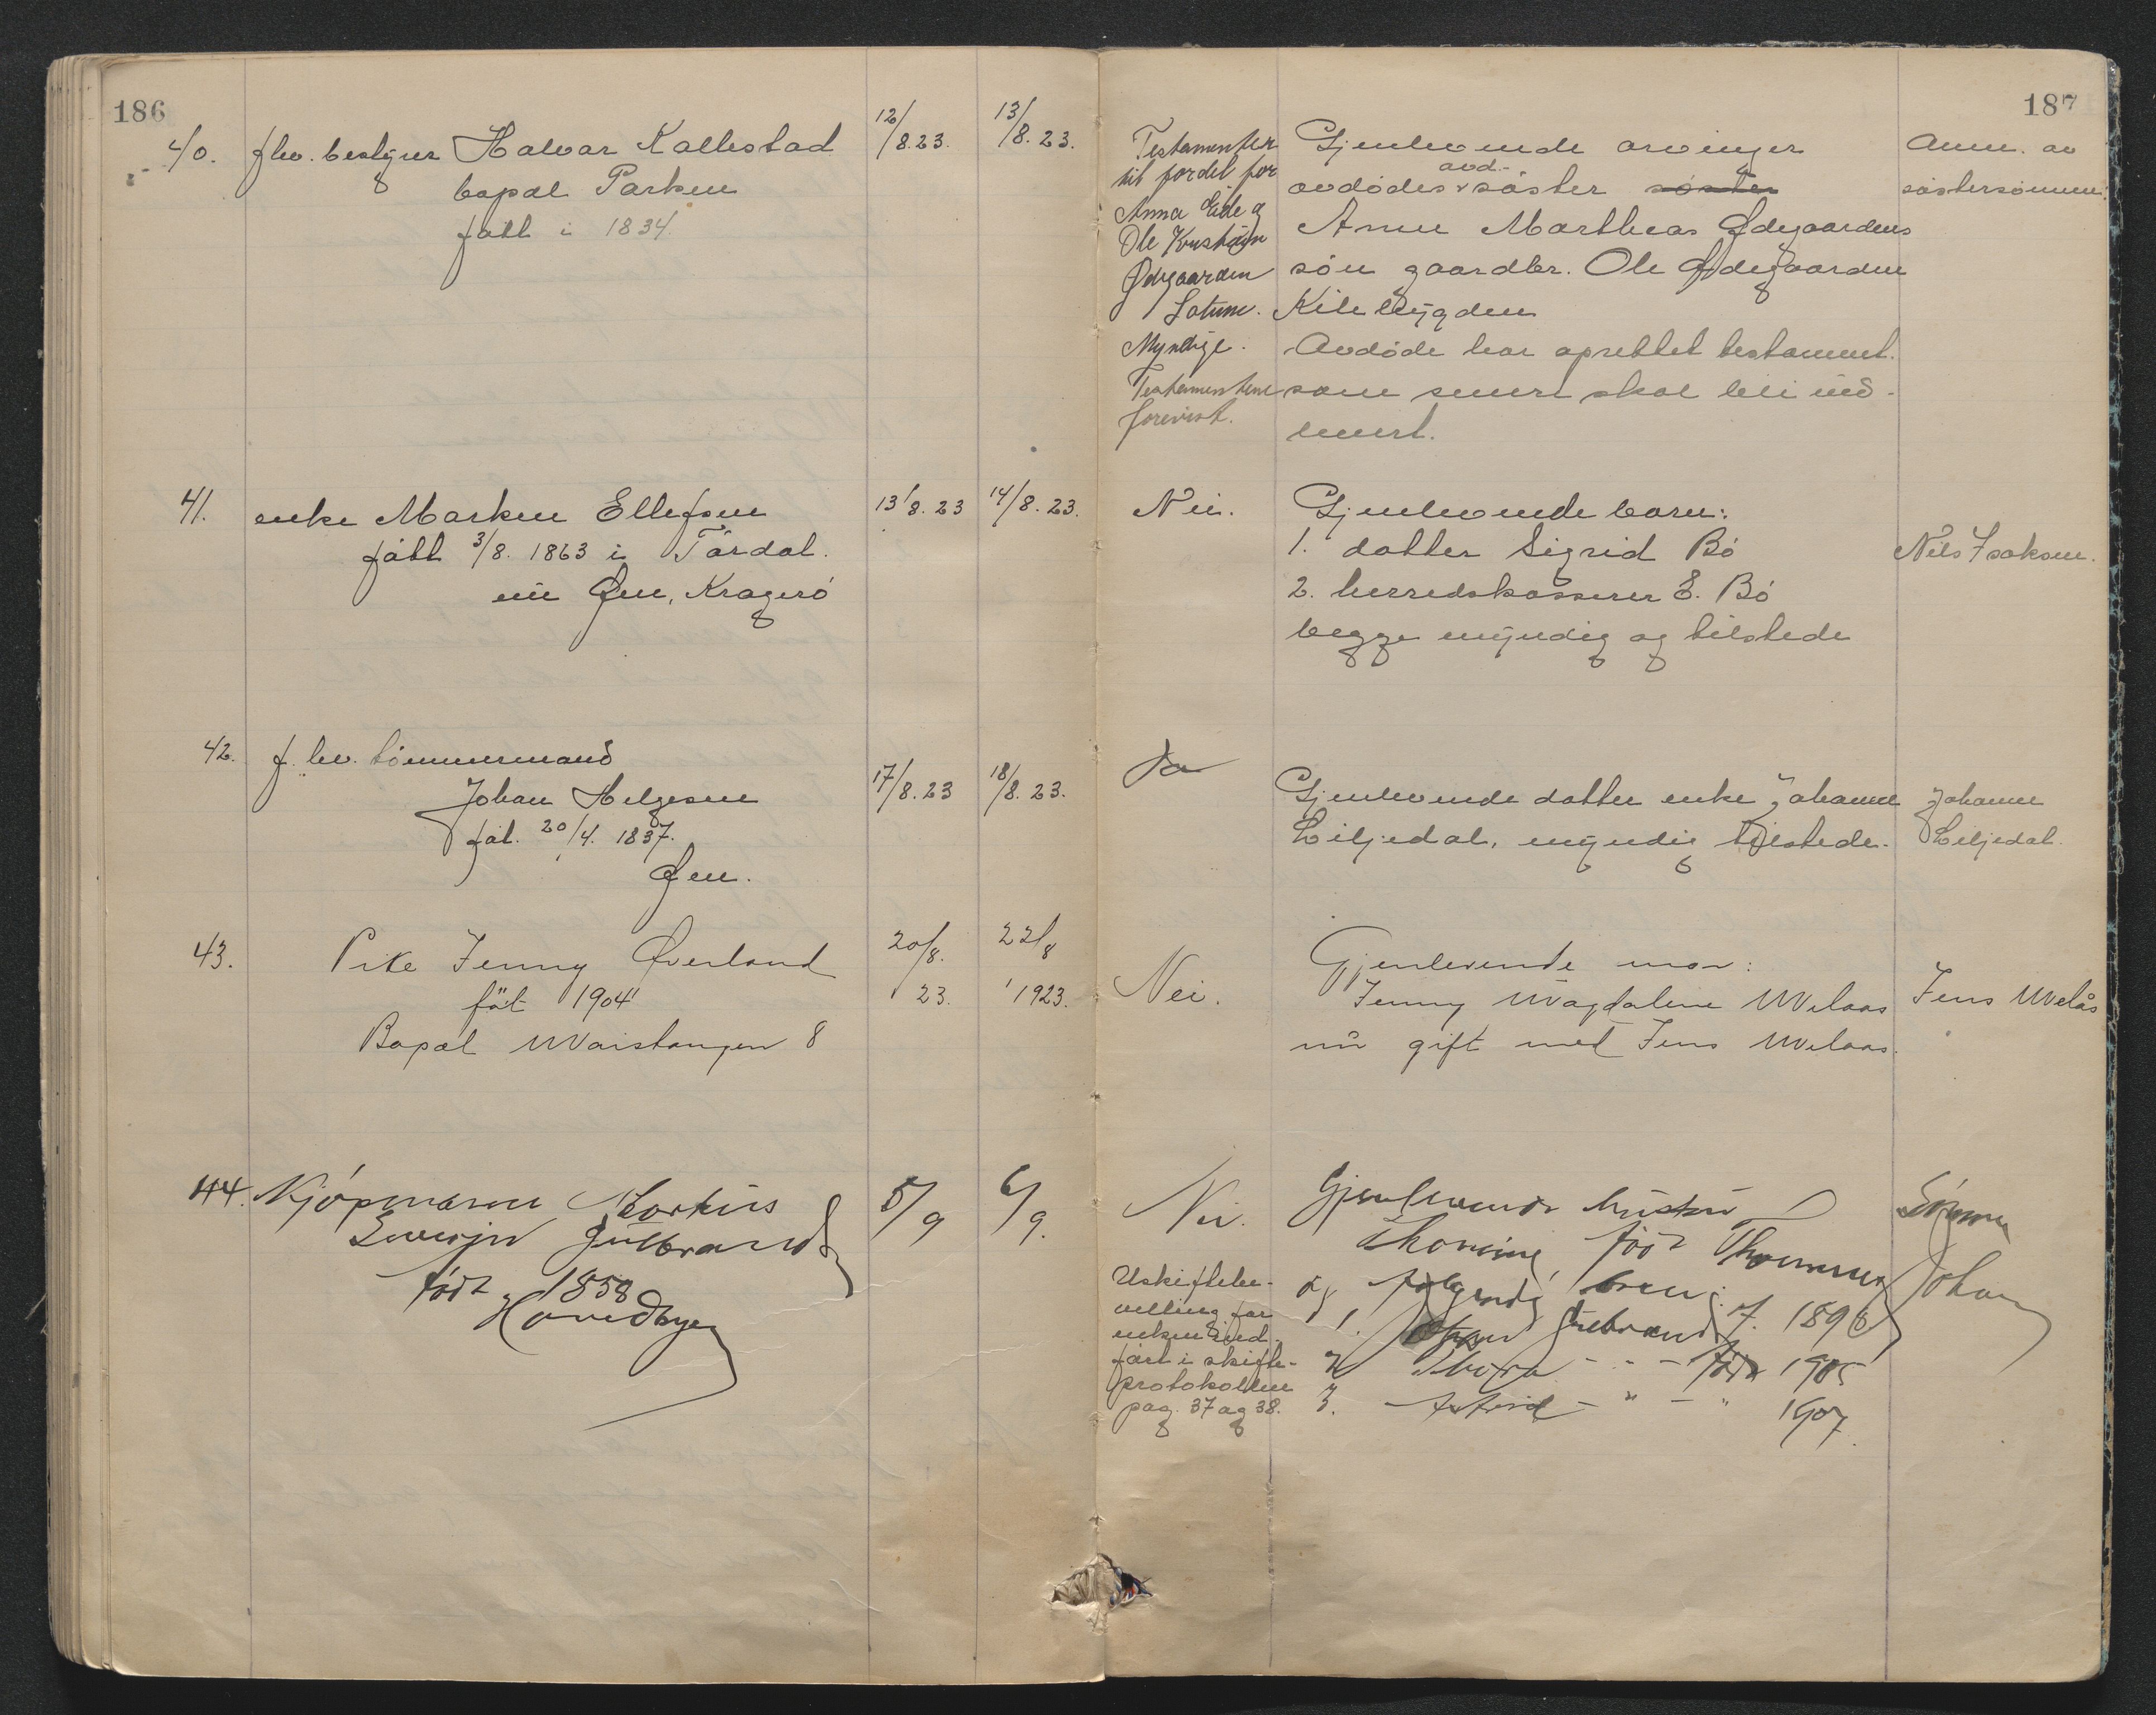 186
187
40. fhv. bestyrer Halvar Kallestad
bopæl Parken
født i 1834
12/8.23.
13/8.23.
Testamenter
til fordel for
Anna Eide og
Ole Kristian
Ødegaarden
Myndige.
Testamentene
forevist.
Gjenlevende arvinger
avdødes avd. søster søster
Anne Martheas Ødegaardens
søn gaardbr. Ole Ødegaarden
Kilebygden
Avdøde har oprettet testament.
som senere skal bli ind-
levert.
Anm. av
søstersønnen.
41. enke Marken Ellefsen
født 3/8. 1863 i Tørdal.
Øen, Kragerø
13/8.23
14/8.23.
Nei.
Gjenlevende barn:
1. datter Sigrid Bö
2. herredskasserer E. Bö
begge myndig og tilstede
Nils Isaksen.
42. f.hv. tømmermand
Johan Helgesen
føt. 20/4. 1837.
Øen.
17/8.23
18/8.23.
Ja
Gjenlevende datter enke Johanne
Liljedal, myndig tilstede.
Johanne
Liljedal.
43. Pike Jenny Øverland
føt 1904
Bopæl Valstangen 8
20/8.
23.
22/8
1923.
Nei.
Gjenlevende mor:
Jenny Magdaline Melaas
nu gift med Jens Melaas.
Jens Melås
44. Kjøpmann Martin
Severin Gulbrands
født 1858
Hovedbyen
5/9
6/9.
Nei.
Uskiftebe-
villing for
enken ind-
ført i skifte-
protokollen
pag. 37 og 38.
Gjenlevende hustru
Thomine, født Thommesen
og følgende barn:
1. Gulbrands f. 1896
2. Thora - " - født 1905
3. Astrid - " - " 1907.
Sønnen
Johan